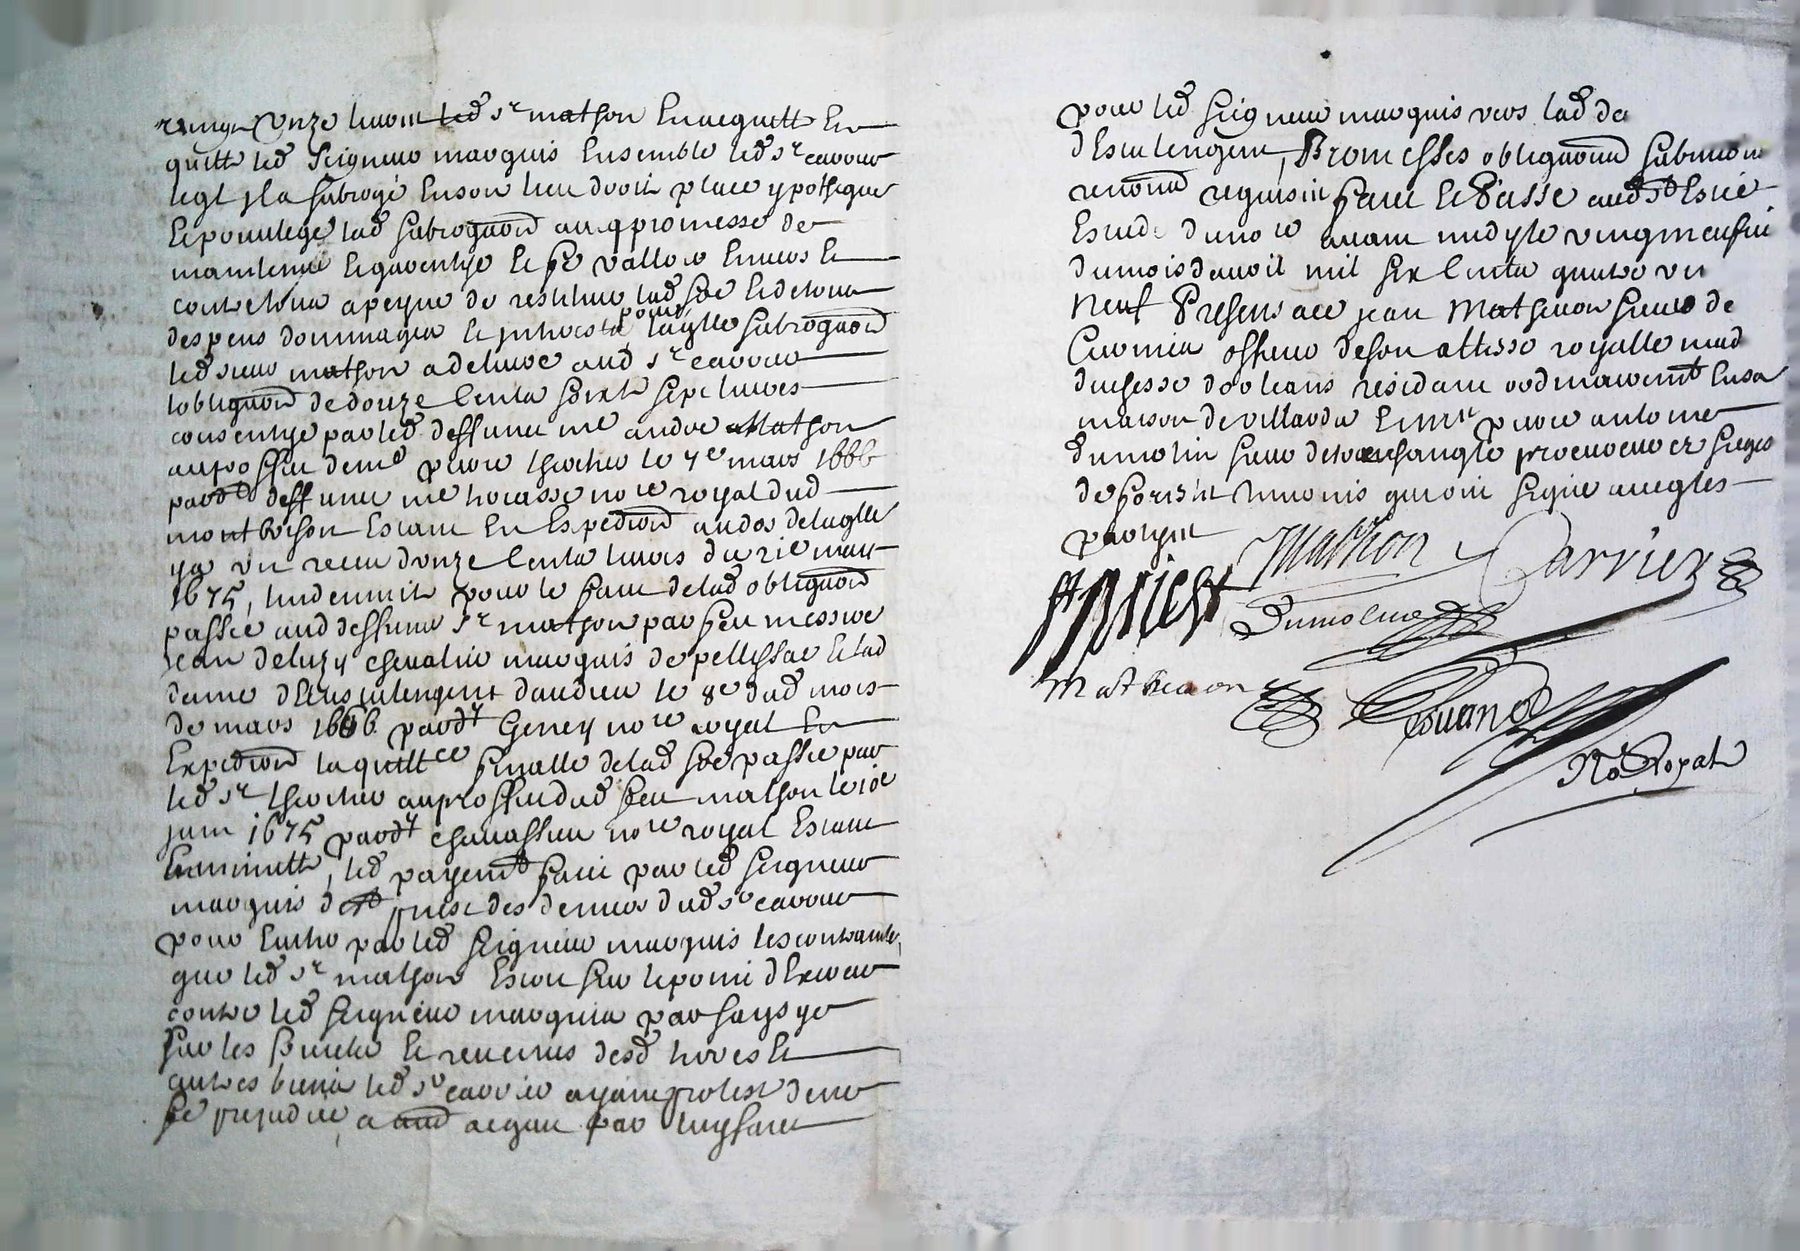 vingt unze livres led Sr mathon En acquitte En
quitte led Seigneur marquis Ensemble led Sr carrier
leql Il a subrogé En son lieu droit place ypotheque
Et privilege lad subrogaōn aveq promesse de
maintenir Et garentye Et fe valloir Envers Et
contre tous a peyne de restituer lad sōe Et de tous
despens dommages Et Interests pour laqlle subrogaōn
led sieur mathon a delivré aud Sr carrier
lobligaōn de douze Cents soixte sept livres
consentye par led deffunt me andré Mathon
au proffict de me pierre thiollier le 7e mars 1666
pard deffunt me horasse nore royal dud
montbrison Estant En Expediōn au dos de laqlle
ya un receu d'unze Cents livres du XIe mars
1675, Indemnité pour le fait de lad obligaōn
passée aud deffunt Sr mathon par feu messire
Jean de luzy chevalier marquis de pellissac Et lad
dame d'Eurre du le 8e dud mois
de mars 1666 pardt Geney nore royal En
Expediōn la quittce finalle de lad sōe passée par
led Sr thiollier au proffict dud feu mathon le 10e
juin 1675 pardt chavassieu nore royal Estant
En minutte, led payemt fait par led seigneur
marquis de st priest des deniers dud Sr carrier
pour Evitter par led seigneur marquis les contraintes
que led Sr mathon Estoit sur le point d'Exercer
contre led seigneur marquis par saysye
sur les fruicts Et revenus desd terres Et
autres biens led Sr carrier ayant protesté de ne
se prejudicier a aud acquit par luy faict
pour led seigneur marquis vers lad de
Promesses obligaōns submiōns
renonōns requises fait Et Passé aud St Estie
Estude du nore avant midy le vingt neufvie
du mois d'avril mil six Cents quatre vin
Neuf Presens Jean Matheron sieur de
Curnieu officier de son altesse royalle mad
duchesse d'orleans residant ordinairemt En sa
maison de villards Et mre pierre antoine
dumolin sieur de procureur Ez sieges
de forests qui ont signé aveq les
partyes
St Priest Mathon Carrier
Dumolin
Matheron
No Royal